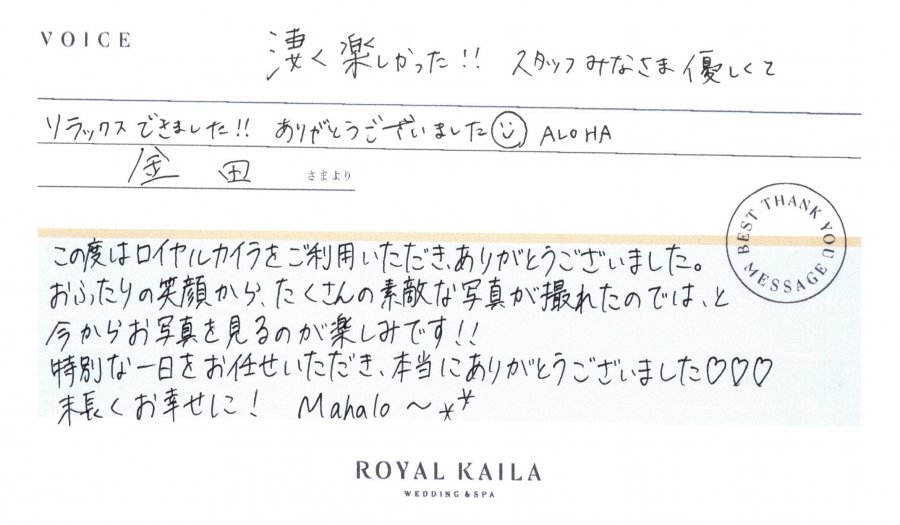 VOICE
凄く楽しかった!! スタッフみなさま優しくて
リラックスできました!! ありがとうございました ALOHA
金田 さまより
BEST THANK YOU MESSAGE
この度はロイヤルカイラをご利用いただき、ありがとうございました。
おふたりの笑顔から、たくさんの素敵な写真が撮れたのでは、と
今からお写真を見るのが楽しみです!!
特別な一日をお任せいただき、本当にありがとうございました♡♡♡
末長くお幸せに! Mahalo〜**
ROYAL KAILA
WEDDING & SPA